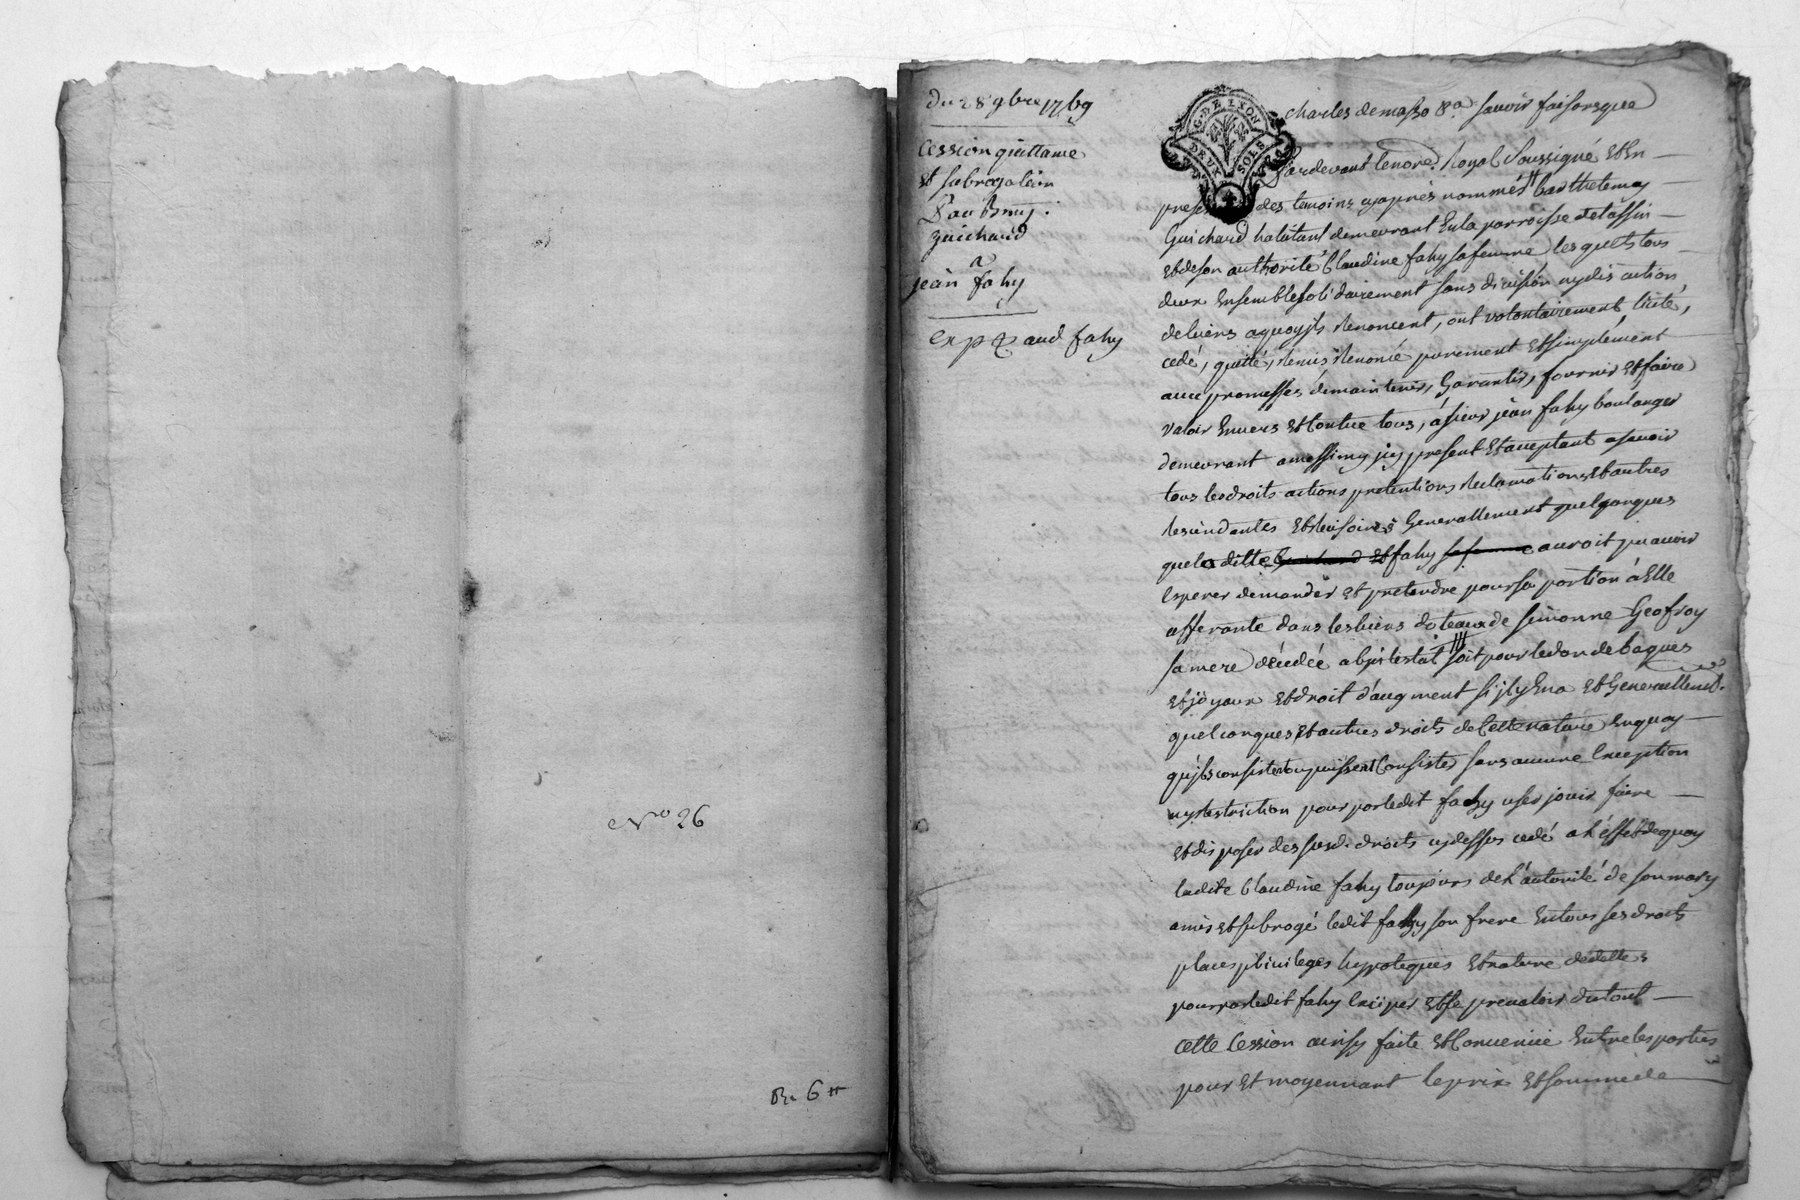 No 26
Bn 6 tt
du 28 9bre 1769
Cession quittance
et subrogation
Par Bmy.
guichard
a
jean fahy
exp aud fahy
G. DE LYON
DEUX SOLS
charles demasso &a. savoir faisons que
Pardevant le nore. Royal soussigné et en
des temoins cyaprès nommés barthelemy
Guichard habitant demeurant en la parroisse detassin
et de son authorité Claudine fahy sa femme lesquels tous
deux ensemble solidairement sans division ny dis cution
de biens aquoy jls renoncent, ont volontairement
cedé, quitté, remis renoncé purement et simplement
avec promesses demaintenir, Garantir, fournir et faire
valoir envers et contre tous, a sieur jean fahy boulanger
demeurant amessimy jcy present et acceptant asavoir
tous les droits actions pretentions reclamations et autres
rescindantes et rescisoires Generallement quelqonques
que la ditte Guichard et fahy sa femme auroit pu avoir
esperer demander et pretendre pour sa portion à elle
afferante dans les biens doteaux de simonne Geofroy
sa mere décédée abjntestat soit pour le don de bagues
et joyaux et droit d'augment sjl y en a et Generallemt.
quelconques et autres droits de cette nature en quoy
qu'jls consistent ou puissent consister sans aucune exception
ny restriction pour par ledit fahy user jouir faire
et dis poser des susd. droits cy dessus cedé a l'effet de quoy
ladite Claudine fahy toujours de l'autorité de son mary
a mis et subrogé ledit fahy son frere en tous ses droits
places privileges hypoteques et nature de dettes
pour par ledit fahy exciper et se prevaloir du tout
cette Cession ainsy faite et convenüe entre les parties
pour et moyennant le prix et somme de